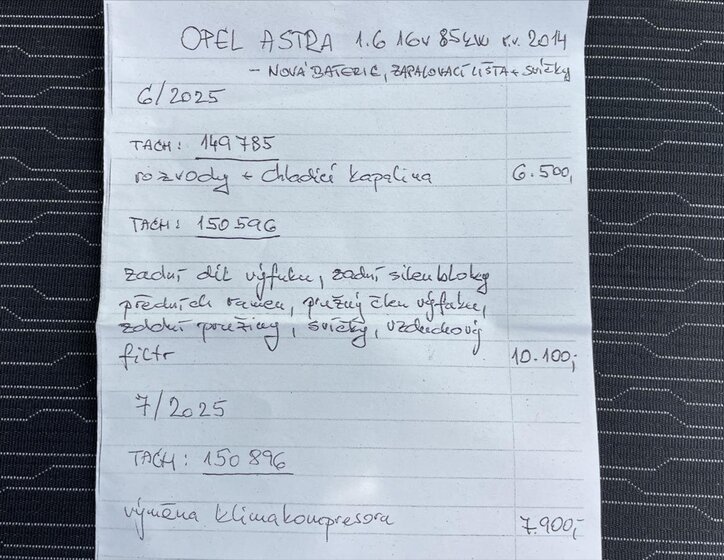 OPEL ASTRA 1.6 16v 85kW r.v. 2014
- NOVÁ BATERIE, ZAPALOVACÍ LIŠTA + SVÍČKY
6/2025
TACH: 149785
rozvody + chladící kapalina 6.500,
TACH: 150596
zadní díl výfuku, zadní silenbloky
předních ramen, pružný člen výfuku,
zadní pružiny, svíčky, vzduchový
filtr 10.100,-
7/2025
TACH: 150896
výměna klimakompresoru 7.900,-